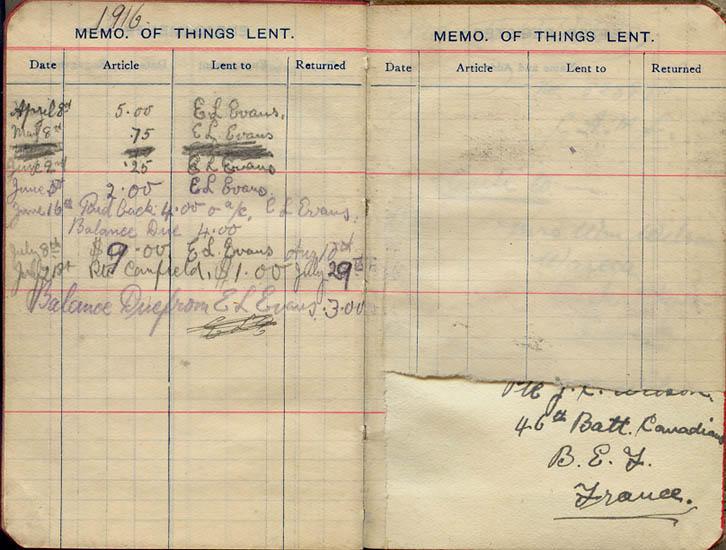 1916.
MEMO. OF THINGS LENT.
Date Article Lent to Returned
April 8th 5.00 E L Evans.
May 8th .75 E L Evans
June 2nd .25 E L Evans
June 5th 2.00 E L Evans.
June 16th Paid back 4.00 o a/c, E L Evans.
Balance Due 4.00
July 8th $9.00 E L Evans Aug 1st.
July 21st Canfield, $1.00 July 29th
Balance Due from E L Evans. 3.00
MEMO. OF THINGS LENT.
Date Article Lent to Returned
46th Batt. Canadians
B. E. F.
France.